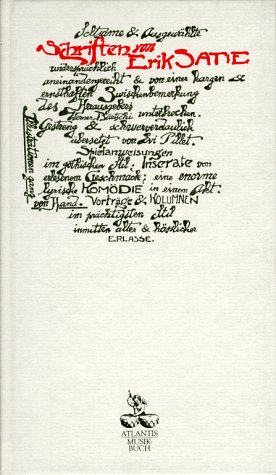 Seltsame & Ausgewählte
Schriften von
Erik SATIE
widersprüchlich
aneinandergereiht & von einer kargen &
ernsthaften Zwischenbemerkung
des Herausgebers
Werner Bärtschi unterbrochen.
Gestreng & schwerverdaulich
übersetzt von Evi Pillet.
Spielanweisungen
im gothischen Stil. Inserate von
erlesenem Geschmack; eine enorme
lyrische KOMÖDIE in einem Akt.
Illustrationen ganz
von Hand. Vorträge & KOLUMNEN
im prächtigsten Stil
inmitten alter & hässlicher
ERLASSE.
ATLANTIS
MUSIK-
BUCH